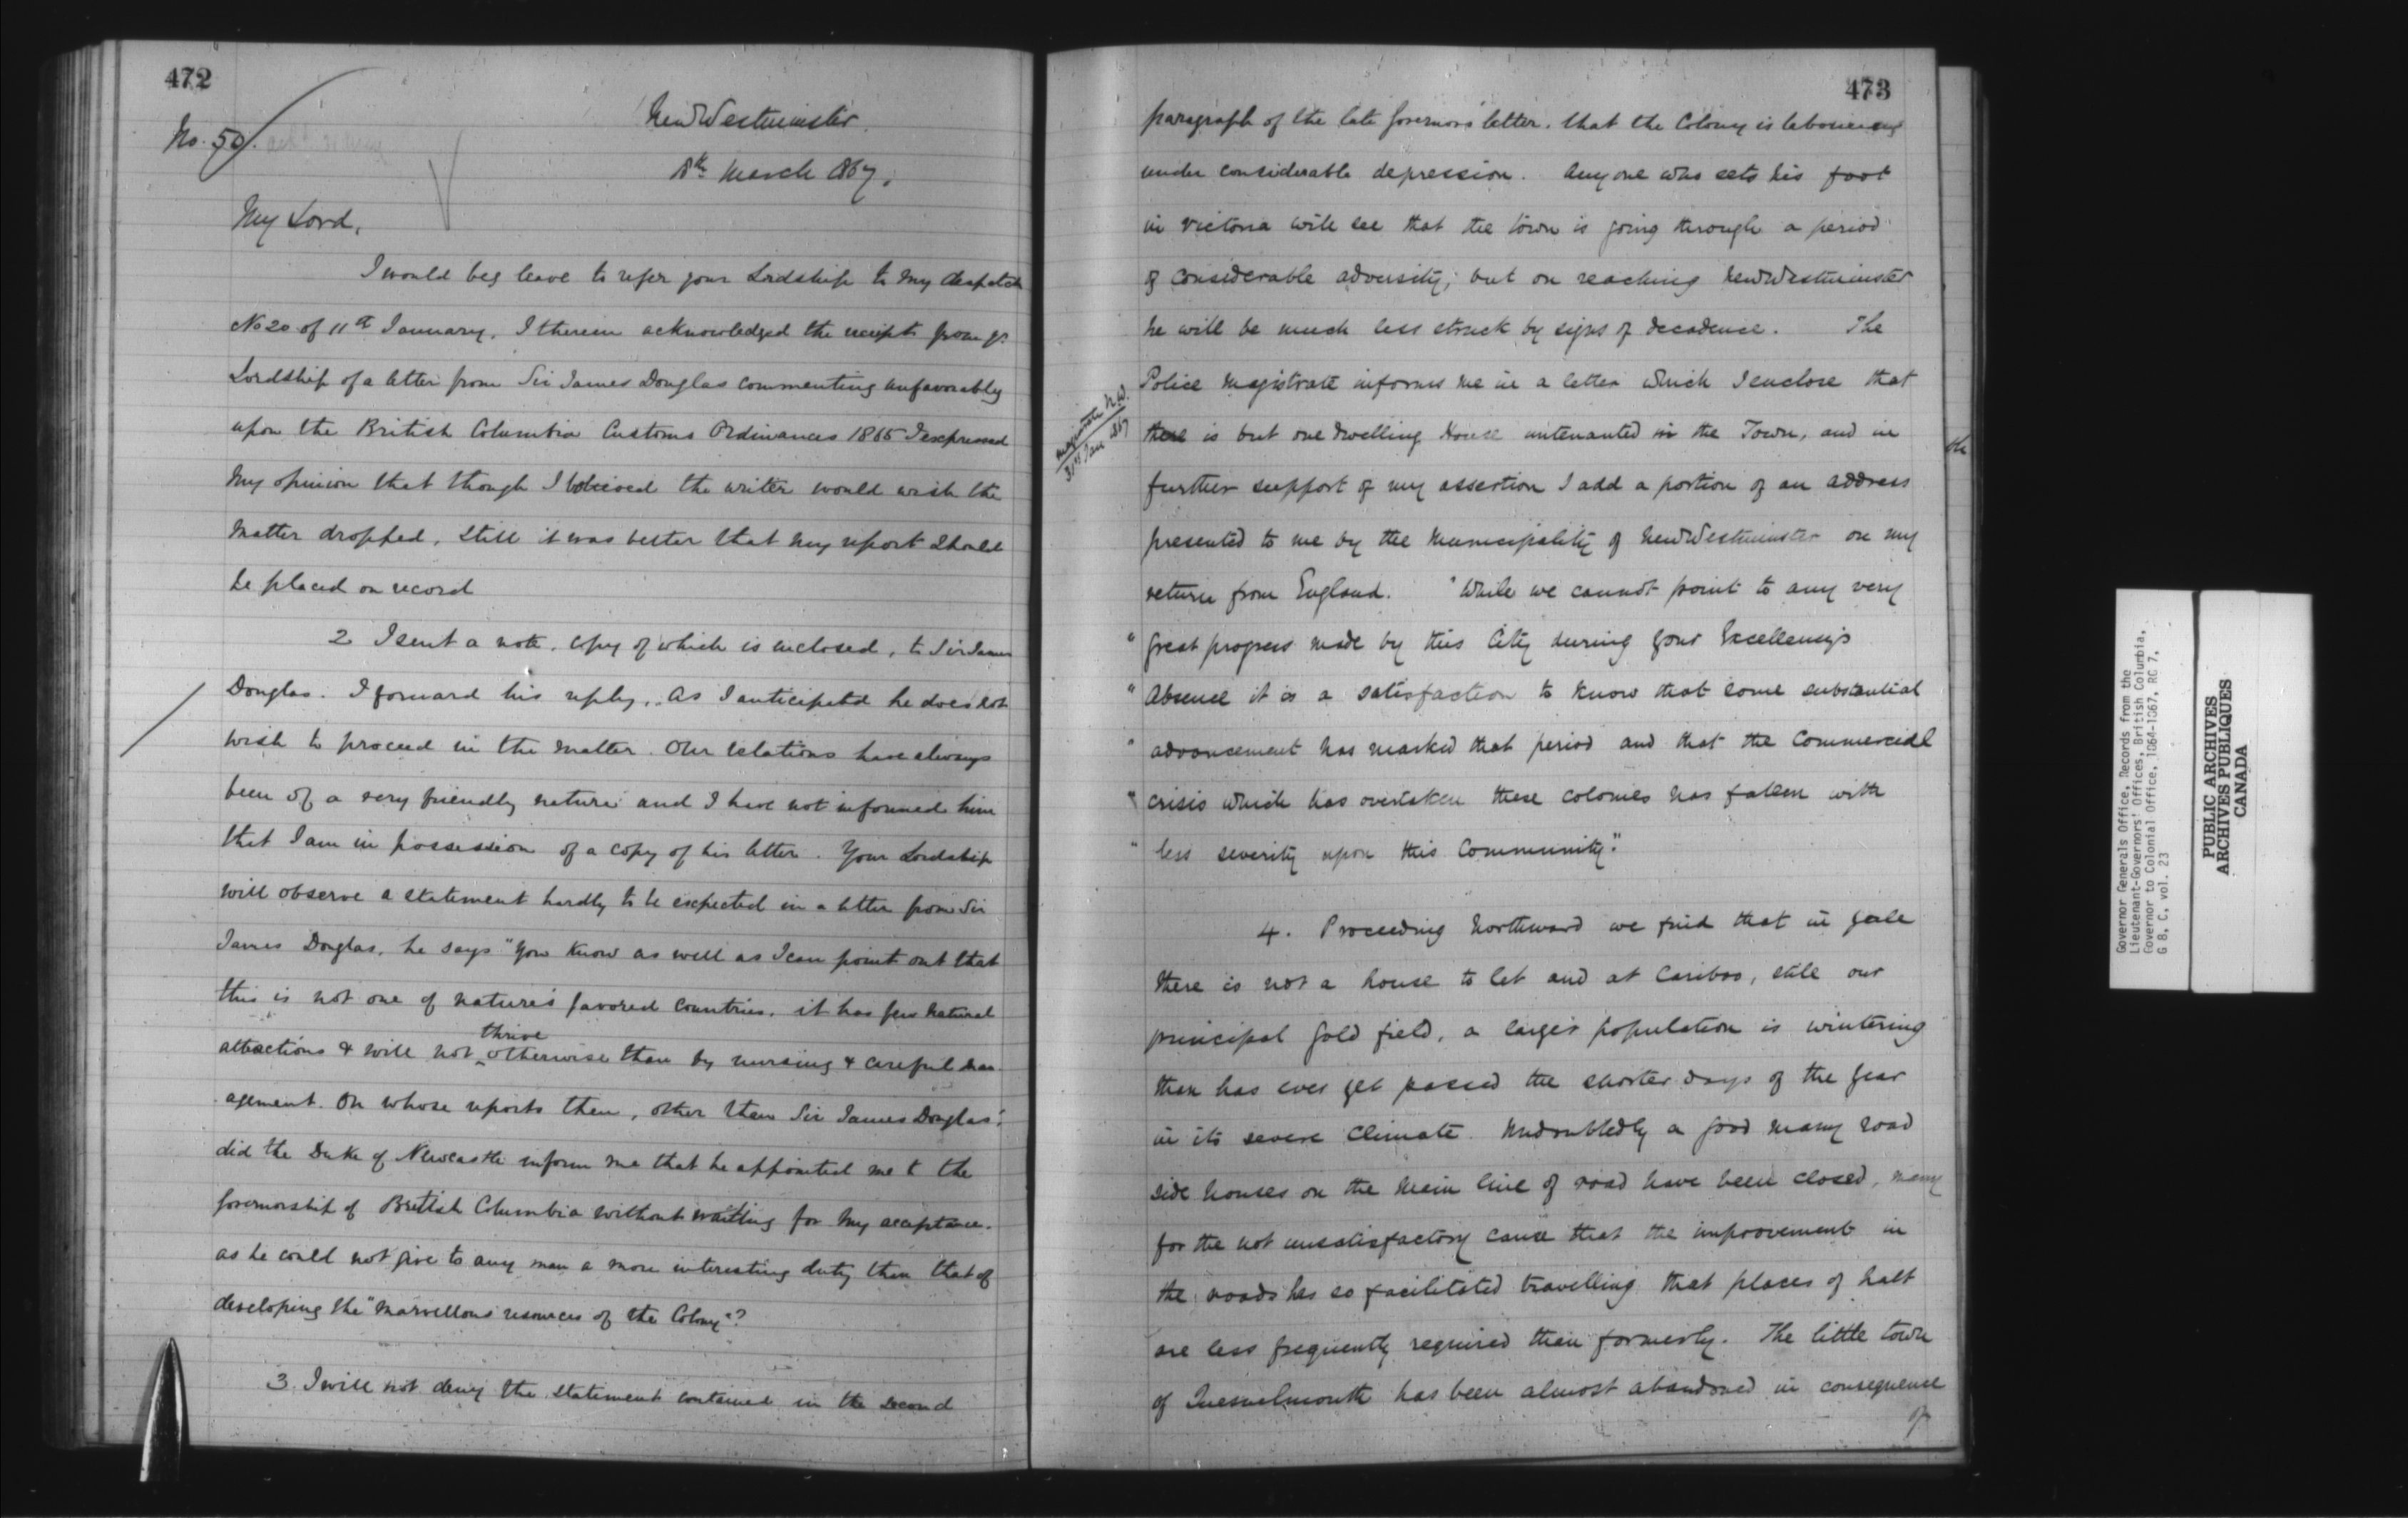 472
No. 50.
New Westminster.
8th March 1867.
My Lord,
I would beg leave to refer your Lordship to my despatch
No 20 of 11th January. I therein acknowledged the receipt from yr
Lordship of a letter from Sir James Douglas commenting unfavorably
upon the British Columbia Customs Ordinances 1865 I expressed
my opinion that though I believed the writer would wish the
matter dropped, still it was better that my report should
be placed on record
2 I sent a note, copy of which is enclosed, to Sir James
Douglas. I forward his reply. As I anticipated he does not
wish to proceed in the matter. Our relations have always
been of a very friendly nature and I have not informed him
that I am in possession of a copy of his letter. Your Lordship
will observe a statement hardly to be expected in a letter from Sir
James Douglas, he says "You know as well as I can point out that
this is not one of nature's favored countries, it has few natural
thrive
attractions & will not ^ otherwise than by nursing & careful man
agement. On whose reports then, other than Sir James Douglas',
did the Duke of Newcastle inform me that he appointed me to the
Governorship of British Columbia without waiting for my acceptance.
as he could not give to any man a more interesting duty than that of
developing the "marvellous resources of the Colony"?
3. I will not deny the statement contained in the second
473
paragraph of the late Governors letter, that the Colony is labouring
under considerable depression. Anyone who sets his foot
in Victoria will see that the town is going through a period
of considerable adversity; but on reaching New Westminster
he will be much less struck by signs of decadence. The
Magistrate N.W.
31st Jan 1867
Police Magistrate informs me in a letter which I enclose that
there is but one dwelling House untenanted in the Town, and in
the
further support of my assertion I add a portion of an address
presented to me by the Municipality of New Westminster on my
return from England. "While we cannot point to any very
" great progress made by this City during your Excellency's
" absence it is a satisfaction to know that some substantial
" advancement has marked that period and that the Commercial
" crisis which has overtaken these colonies has fallen with
" less severity upon this Community."
4. Proceeding Northward we find that in Yale
there is not a house to let and at Cariboo, still our
principal gold field, a larger population is wintering
than has ever yet passed the shorter days of the year
in its severe climate. Undoubtedly a good many road
side houses on the main line of road have been closed, many
for the not unsatisfactory cause that the improvement in
the roads has so facilitated travelling that places of halt
are less frequently required than formerly. The little town
of Quesnelmouth has been almost abandoned in consequence
of
Governor Generals Office, Records from the
Lieutenant-Governors' Offices, British Columbia,
Governor to Colonial Office, 1864-1867, RC 7,
G 8, C, vol. 23
PUBLIC ARCHIVES
ARCHIVES PUBLIQUES
CANADA